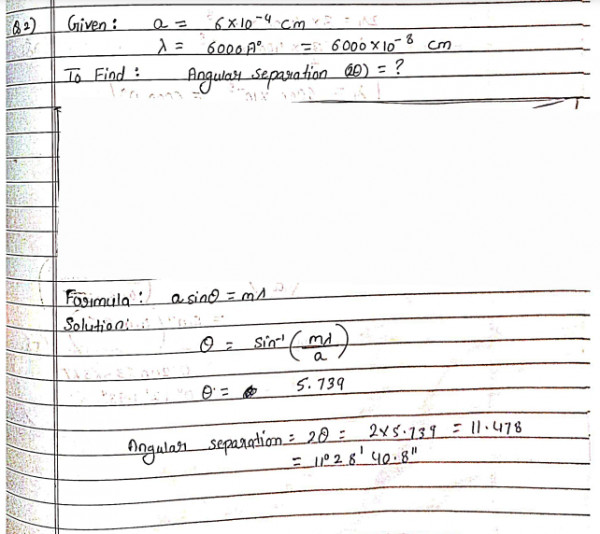 Q2) Given : a = 6×10⁻⁴ cm
λ = 6000 A° = 6000×10⁻⁸ cm
To Find : Angular separation (2θ) = ?
Formula : a sinθ = mλ
Solution:
θ = sin⁻¹ (mλ/a)
θ = 5.739
Angular separation = 2θ = 2×5.739 = 11.478
= 11° 28' 40.8"